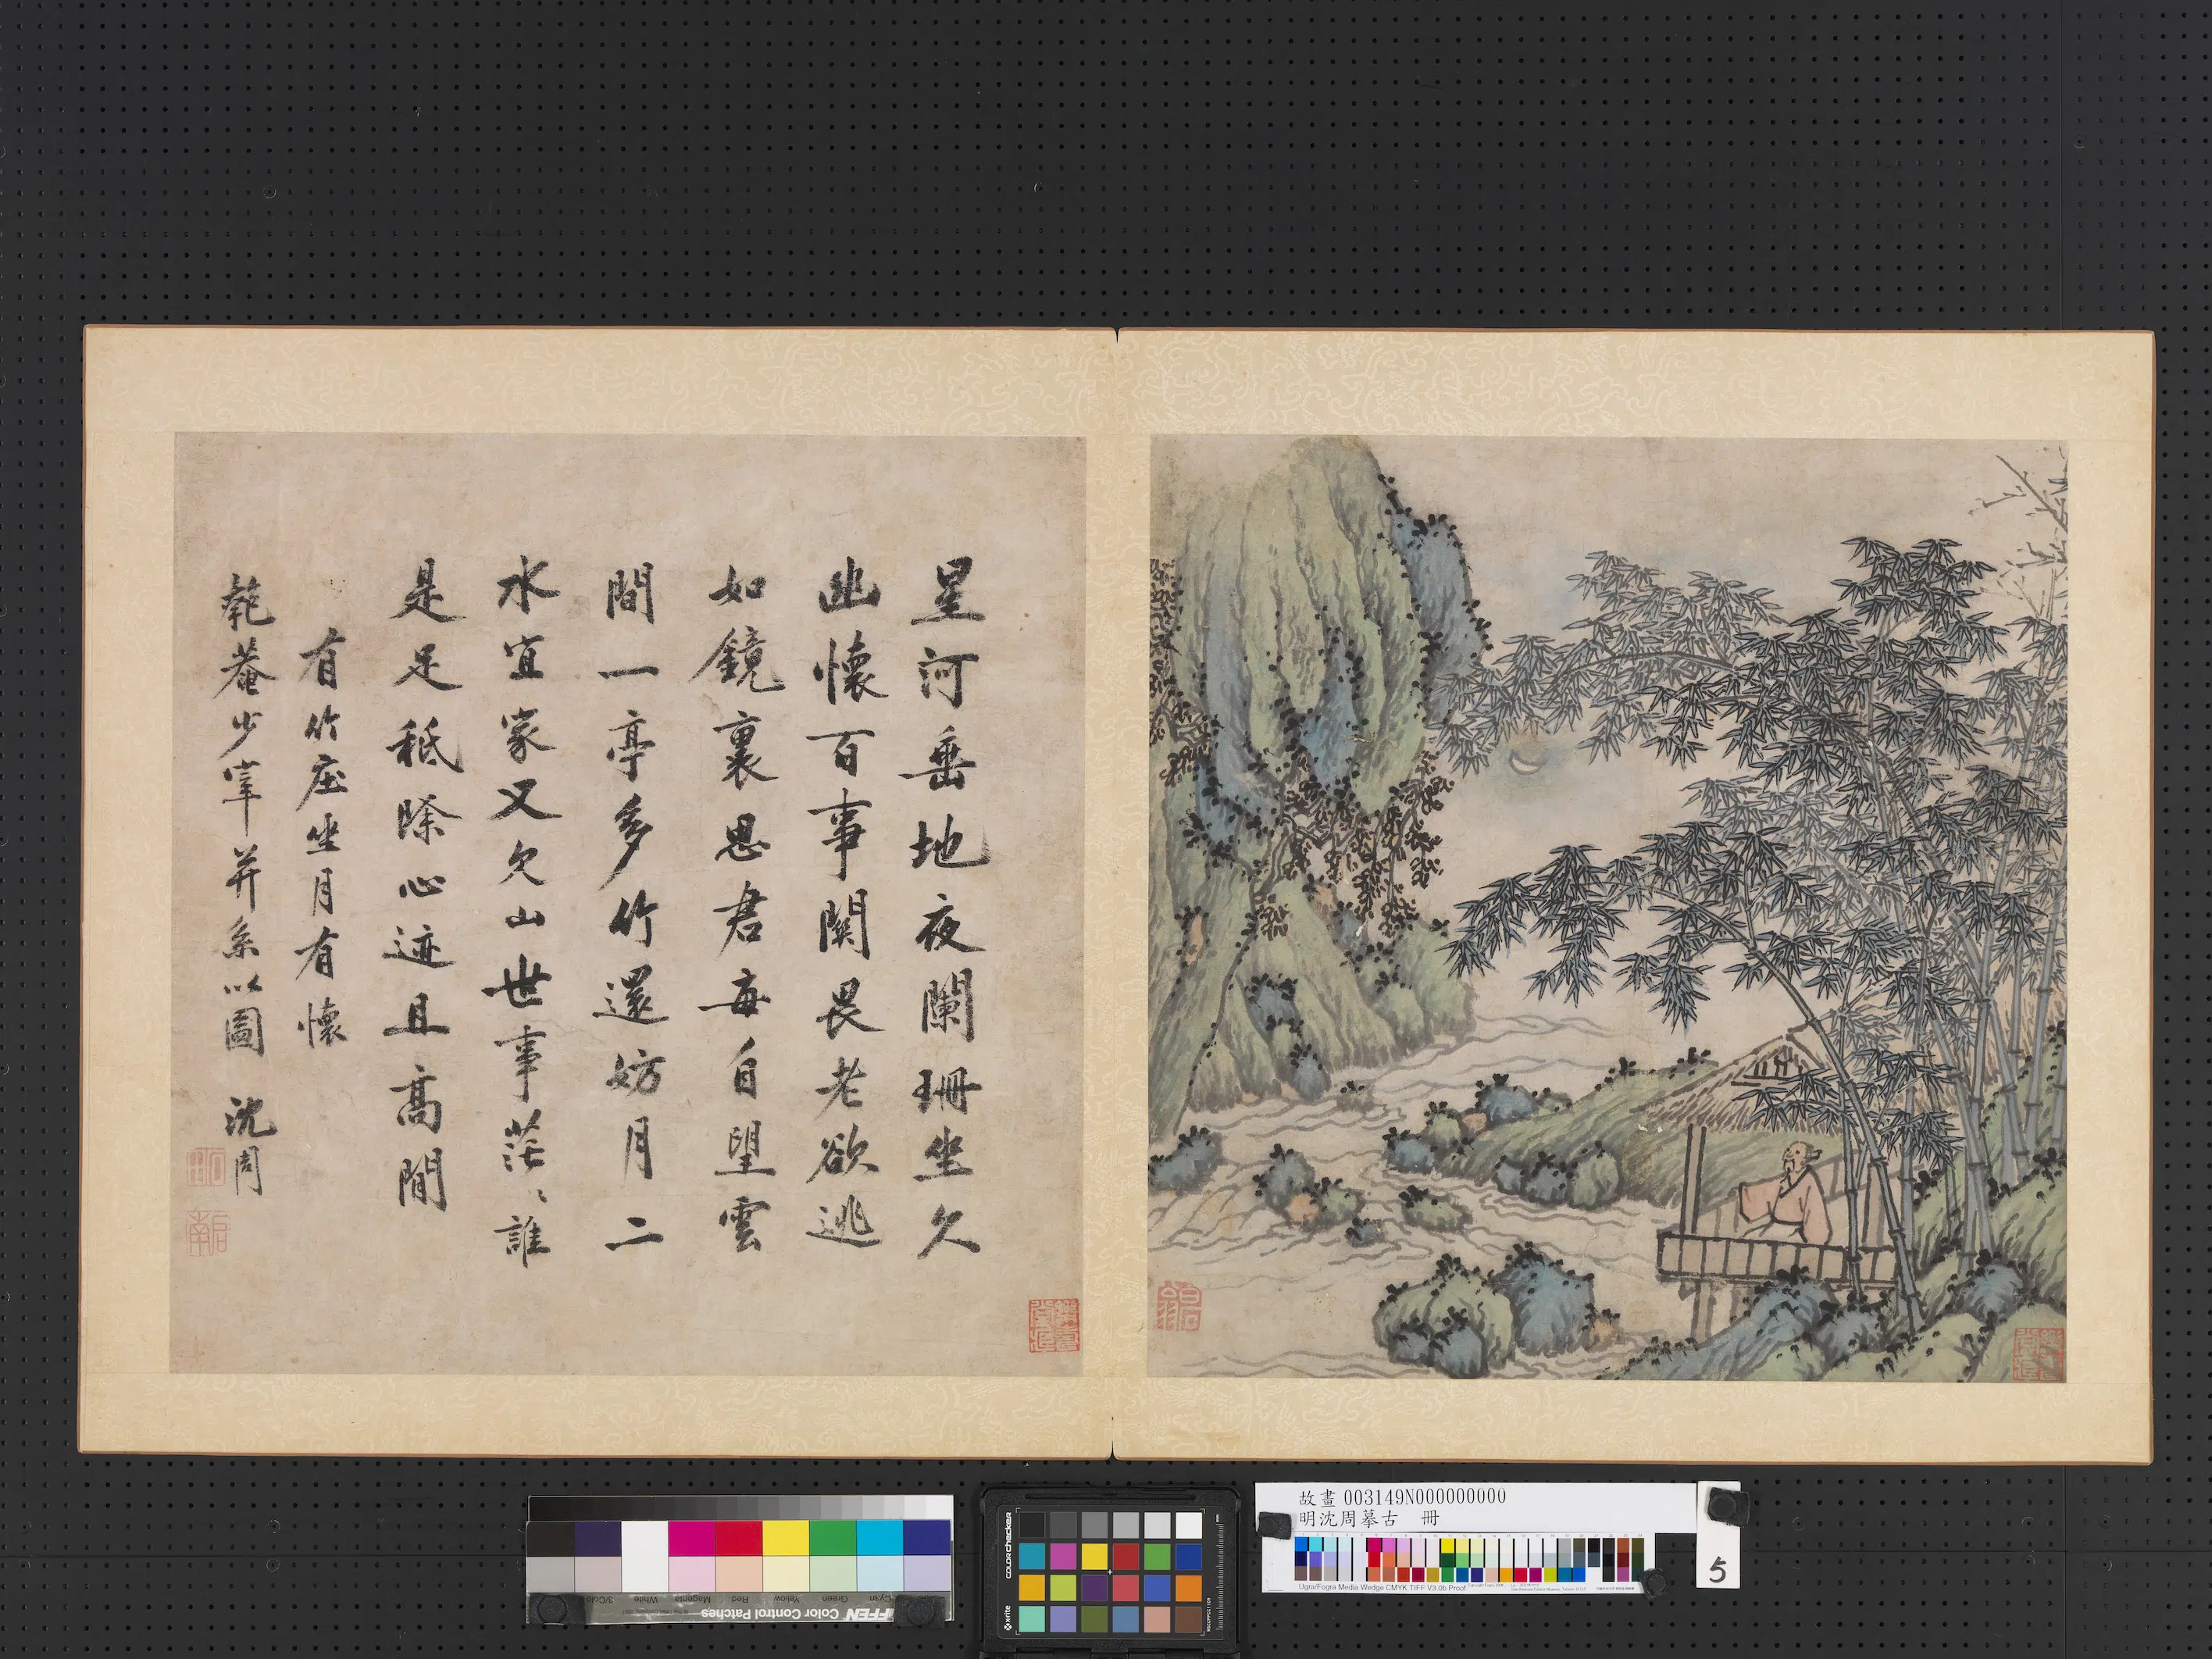 星河垂地夜闌珊坐久
幽懷百事関畏老欲逃
如鏡裏思君每自望雲
間一亭多竹還妨月二
水宜家又欠山世事茫〻誰
是足秪除心迹且高閒
有竹庄坐月有懷
匏菴少宰并系以圖 沈周
啓南
故畫 003149N000000000
明沈周摹古 冊
5
colorchecker
x-rite
TIFFEN Color Control Patches
3/Color
White
Magenta
Red
Yellow
Green
Cyan
Ugra/Fogra Media Wedge CMYK TIFF V3.0b Proof